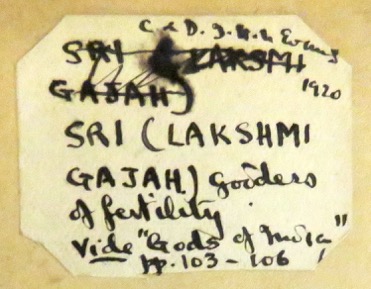 C & D. J. H. N Evans
SRI LAKSMI
1920
GAJAH)
SRI (LAKSHMI
GAJAH) Goddess
of fertility
Vide "Gods of India"
pp. 103 - 106 !